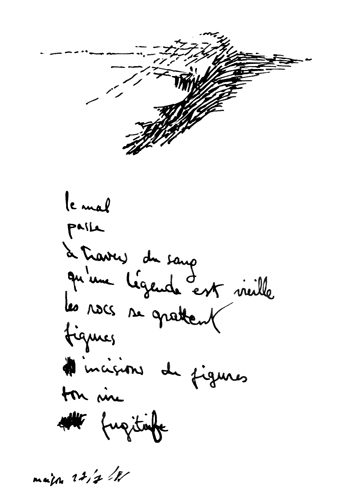 le mal
passe
à travers du sang
qu'une légende est vieille
les rocs se grattent
figures
incisions de figures
ton rire
fugitif
maison